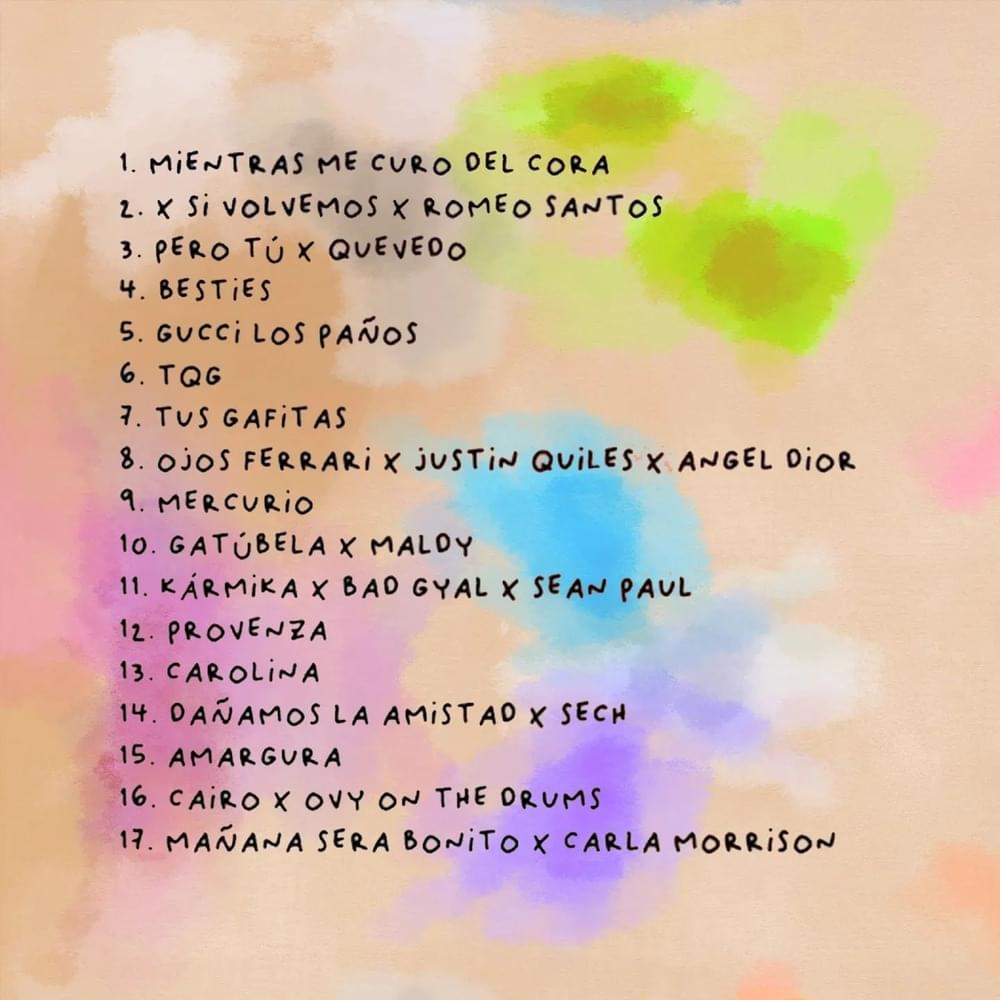 1. MiENTRAS ME CURO DEL CORA
2. X Si VOLVEMOS X ROMEO SANTOS
3. PERO TÚ X QUEVEDO
4. BESTiES
5. GUCCi LOS PAÑOS
6. TQG
7. TUS GAFiTAS
8. OjOS FERRARi X jUSTiN QUiLES X ANGEL DiOR
9. MERCURiO
10. GATÚBELA X MALDY
11. KÁRMiKA X BAD GYAL X SEAN PAUL
12. PROVENZA
13. CAROLiNA
14. DAÑAMOS LA AMiSTAD X SECH
15. AMARGURA
16. CAiRO X OVY ON THE DRUMS
17. MAÑANA SERA BONiTO X CARLA MORRiSON